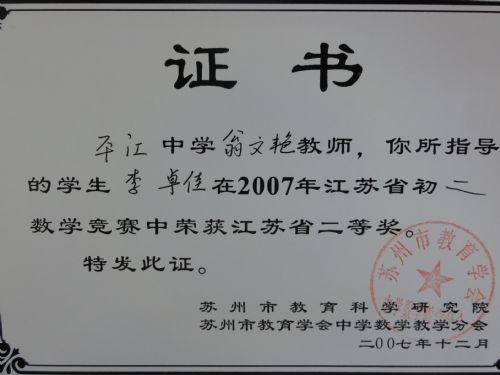 证 书
平江中学翁文艳教师，你所指导
的学生李卓佳在2007年江苏省初二
数学竞赛中荣获江苏省二等奖。
特发此证。
苏州市教育学会
苏州市教育科学研究院
苏州市教育学会中学数学教学分会
二00七年十二月